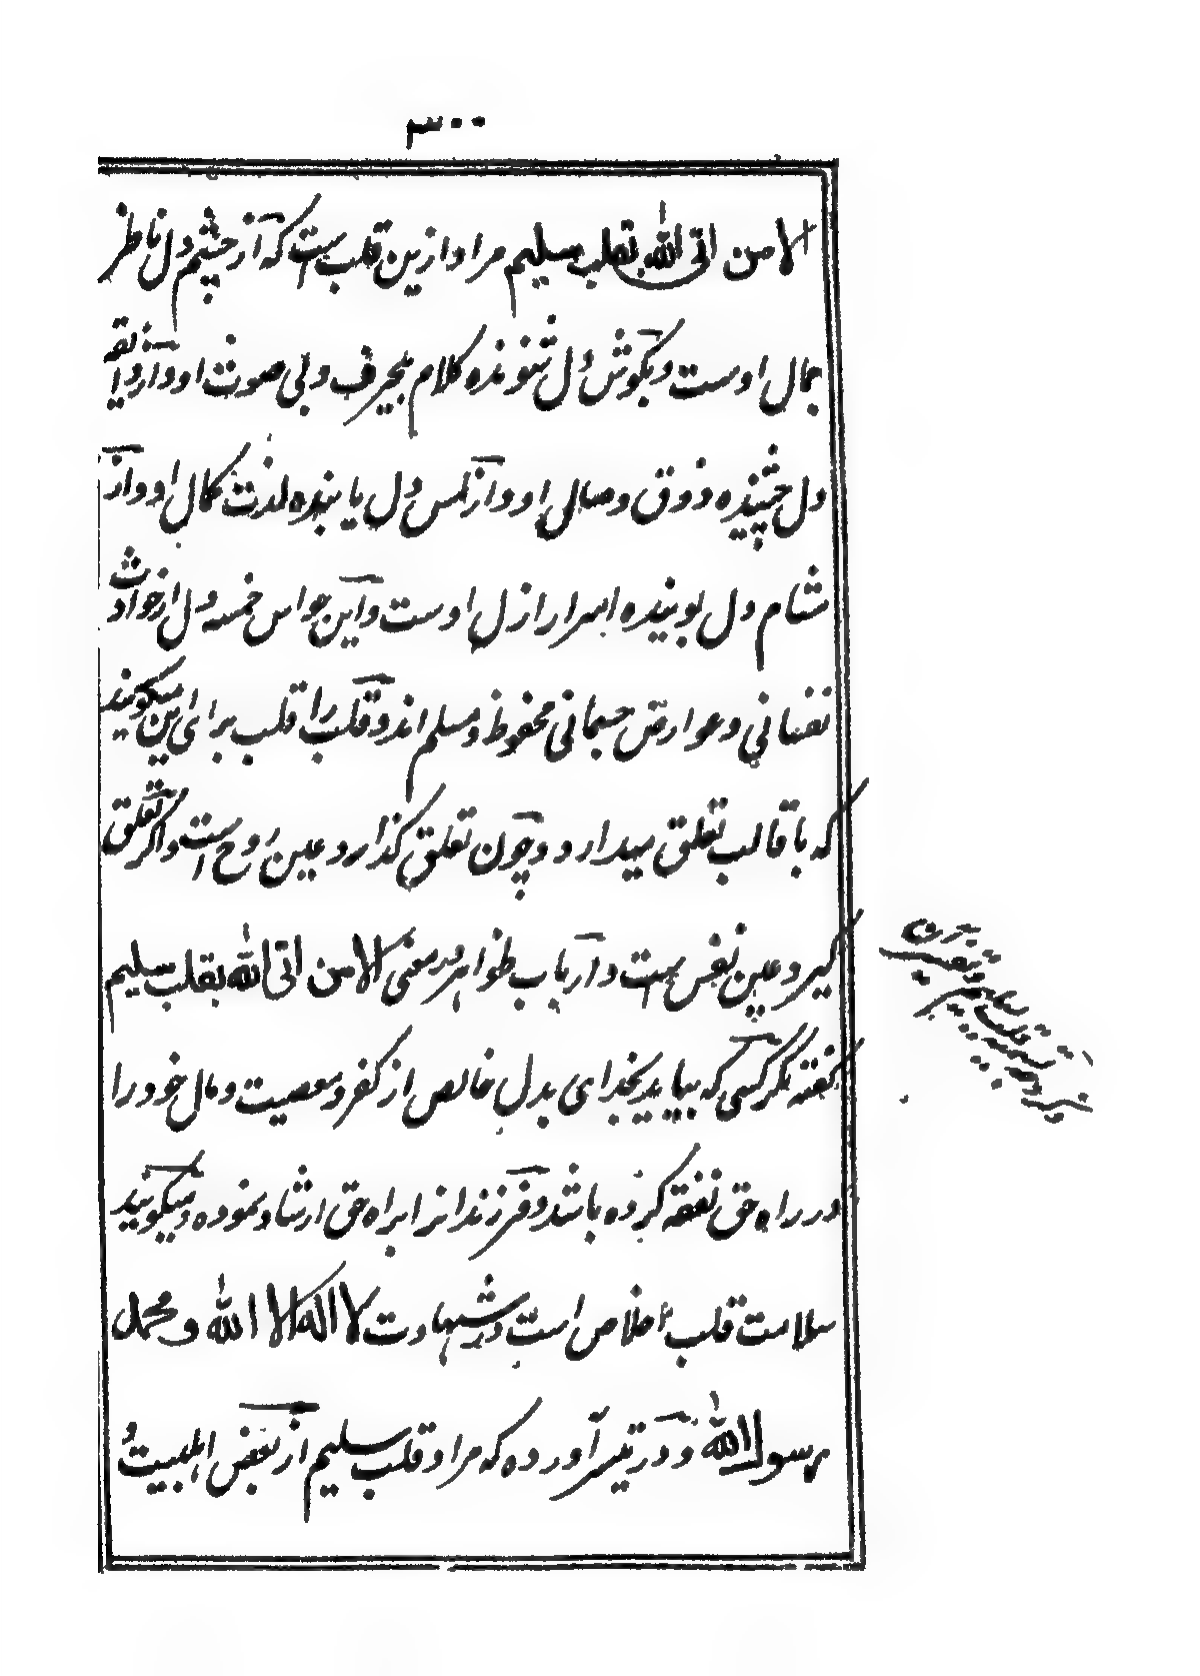 ۳۰۰
الا من اتی الله بقلب سلیم مراد ازین قلب است که از چشم دل ناظر
جمال اوست و بگوش دل شنونده کلام بیحرف و بی صوت او و از ذائقه
دل چشنده ذوق وصال او و از لمس دل یابنده لذت کمال او و از
شام دل بوینده اسرار ازل اوست و این حواس خمسه دل از حوادث
نفسانی و عوارض جسمانی محفوظ و مسلم اند و قلب را قلب برای این میگویند
که با قالب تعلق میدارد و چون تعلق گذارد عین روح است و اگر تعلق
گیرد عین نفس است و ارباب ظواهر در معنی الا من اتی الله بقلب سلیم
گفته مگر کسی که بیاید بخدای بدل خالص از کفر و معصیت و مال خود را
در راه حق نفقه کرده باشد و فرزندانرا براه حق ارشاد نموده و میگویند
سلامت قلب اخلاص است در شهادت لا اله الا الله و محمد
رسول الله و در تیسیر آورده که مراد قلب سلیم از بعض اهلبیت
ذکر وجه تسمیه قلب سلیم و تفسیر آن